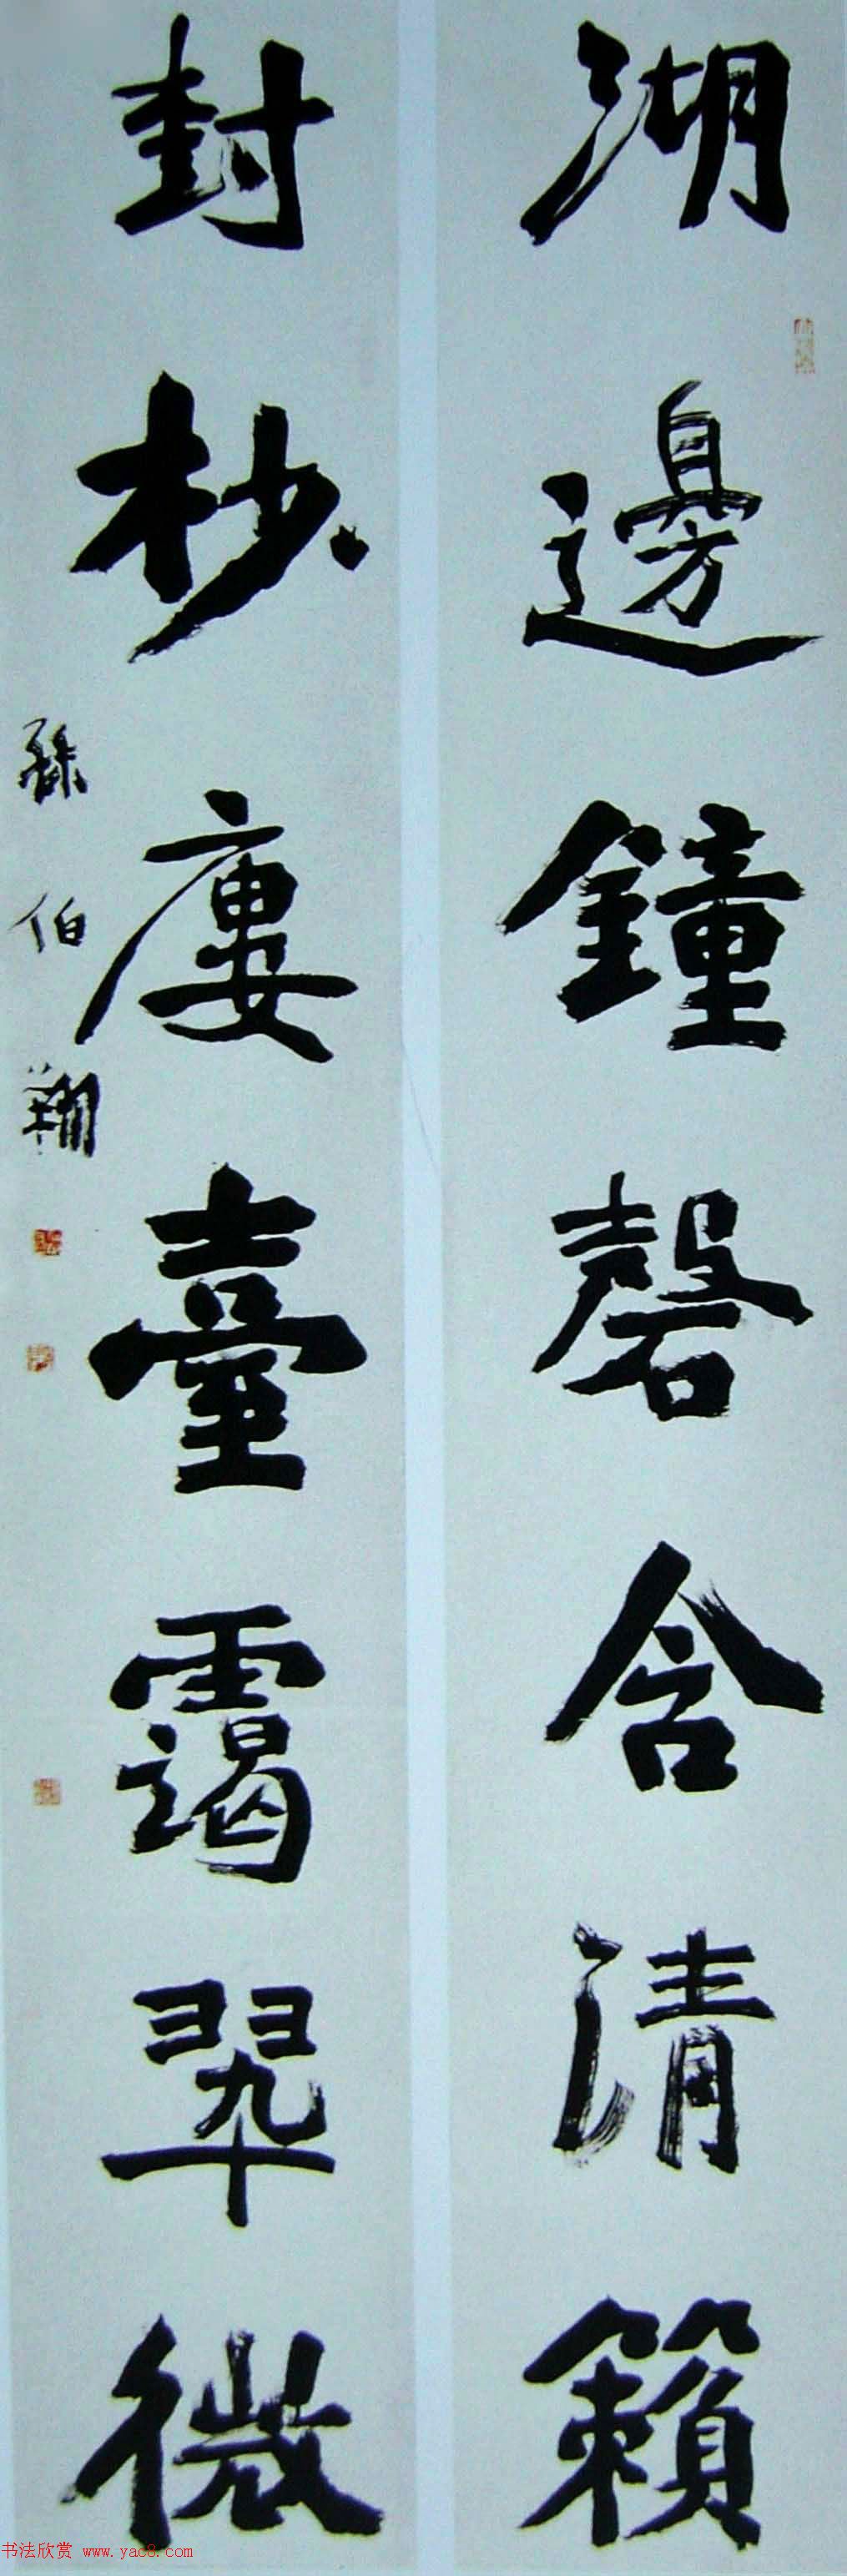 湖邊鐘磬含清籟
封杪廔臺靄翠微
孫伯翔
书法欣赏 www.yac8.com